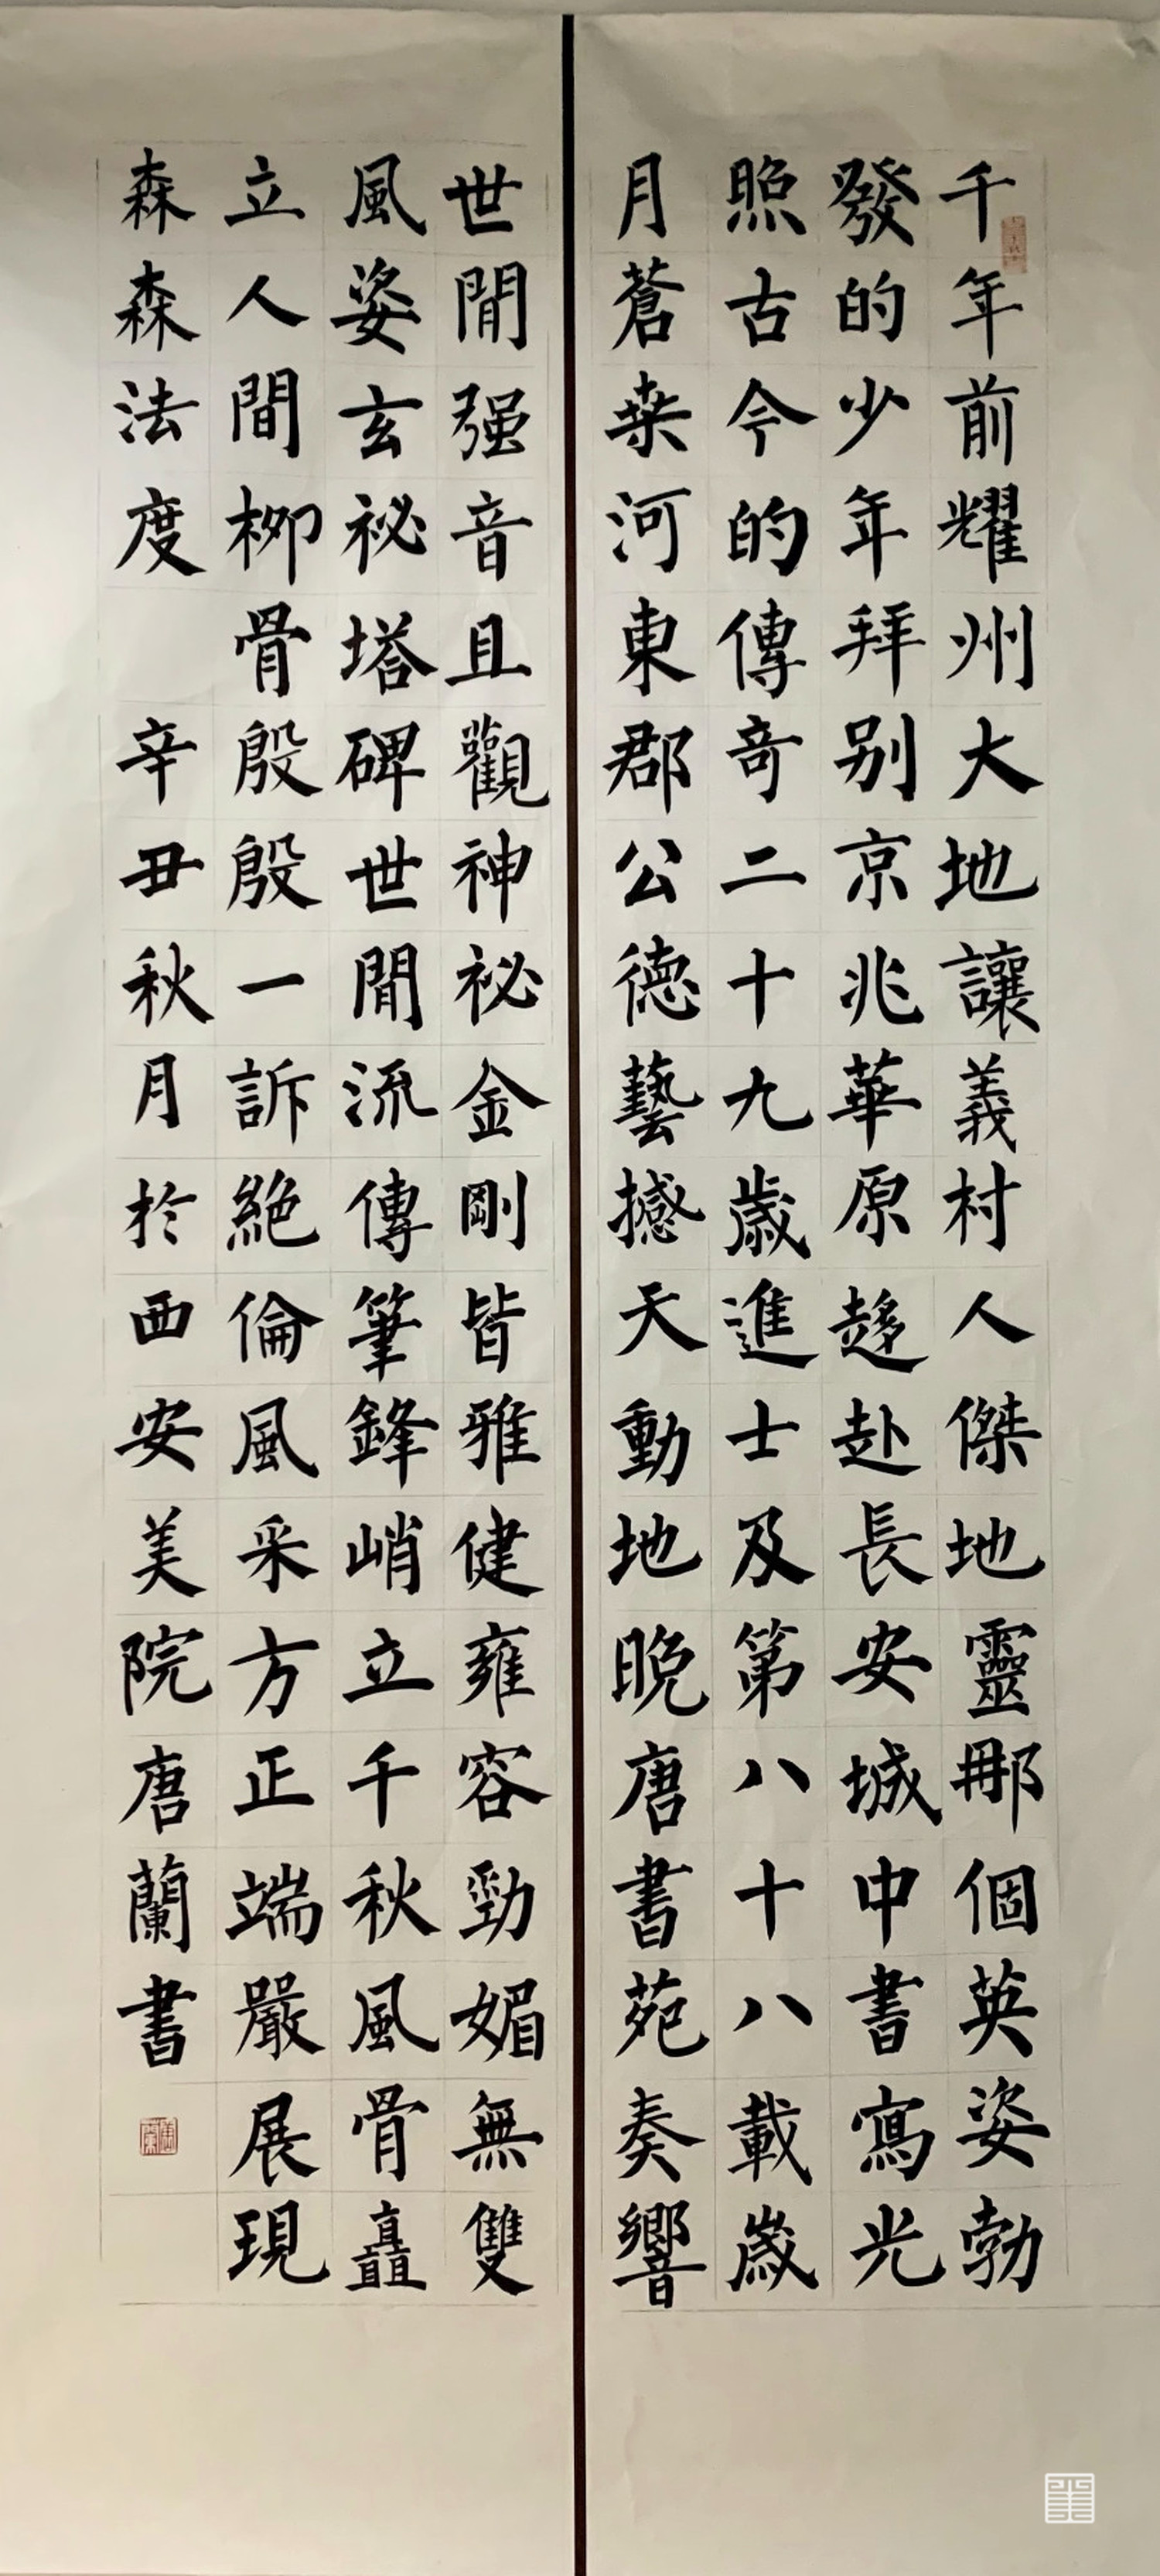 千年前耀州大地讓義村人傑地靈那個英姿勃
發的少年拜别京兆華原趍赴長安城中書寫光
照古今的傳奇二十九歲進士及第八十八載歲
月蒼桒河東郡公德藝撼天動地晚唐書苑奏響
世間强音且觀神祕金剛皆雅健雍容勁媚無雙
風姿玄祕塔碑世間流傳筆鋒峭立千秋風骨矗
立人間柳骨殷殷一訴絶倫風采方正端嚴展現
森森法度 辛丑秋月於西安美院唐蘭書